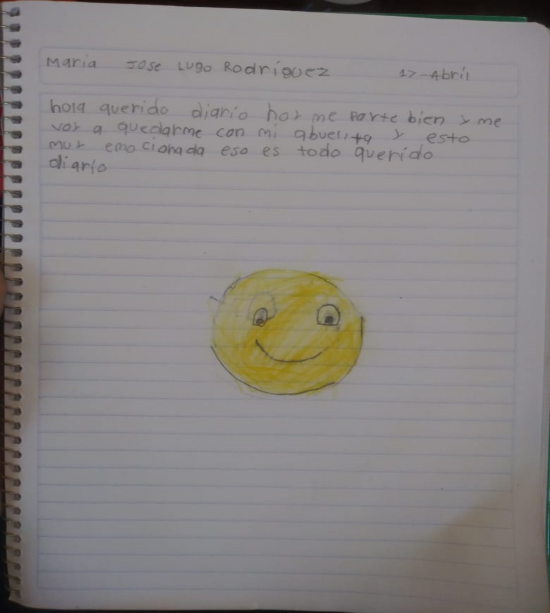 Maria Jose Lugo Rodriguez 17-Abril
hola querido diario hoy me porte bien y me
voy a quedarme con mi abuelita y esto
muy emocionada eso es todo querido
diario